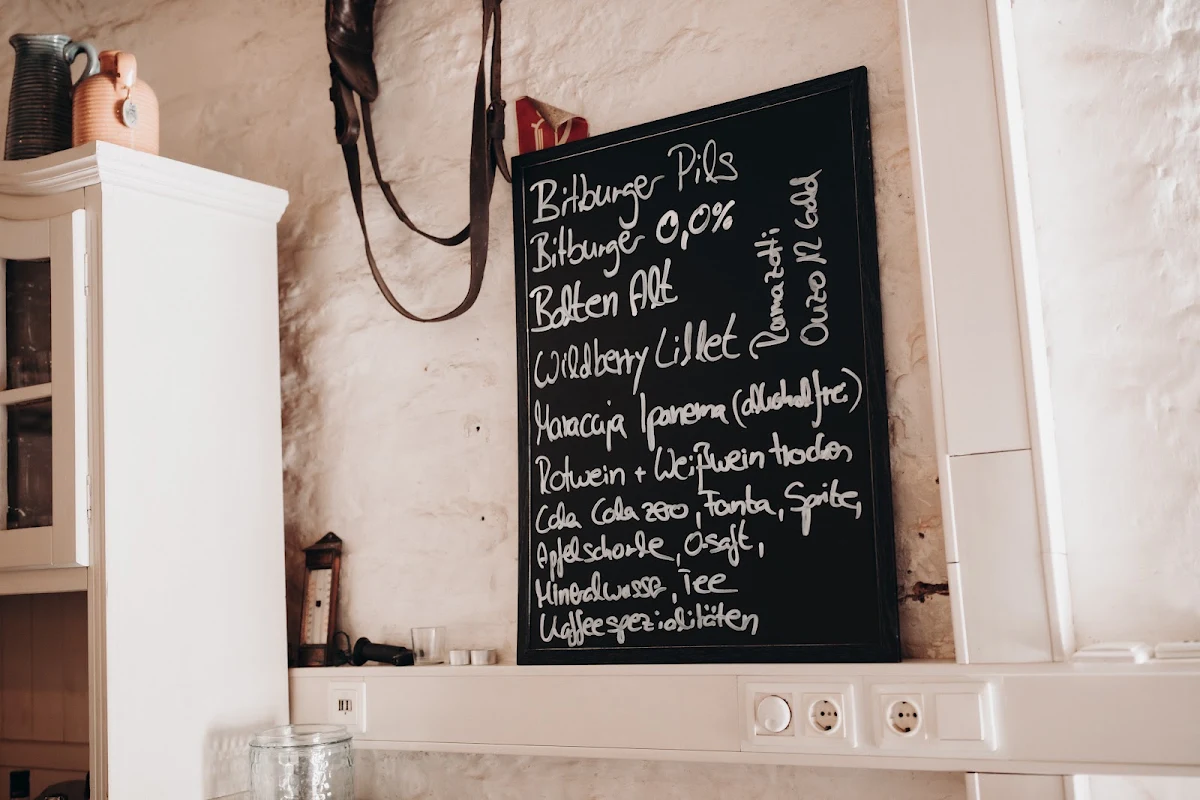 Bitburger Pils
Bitburger 0,0%
Bolten Alt
Wildberry Lillet
Ramazotti
Ouzo 12 Gold
Maracuja Ipanema (alkoholfrei)
Rotwein + Weißwein trocken
Cola Cola zero, Fanta, Sprite,
Apfelschorle, O-saft,
Mineralwasser, Tee
Kaffeespezialitäten